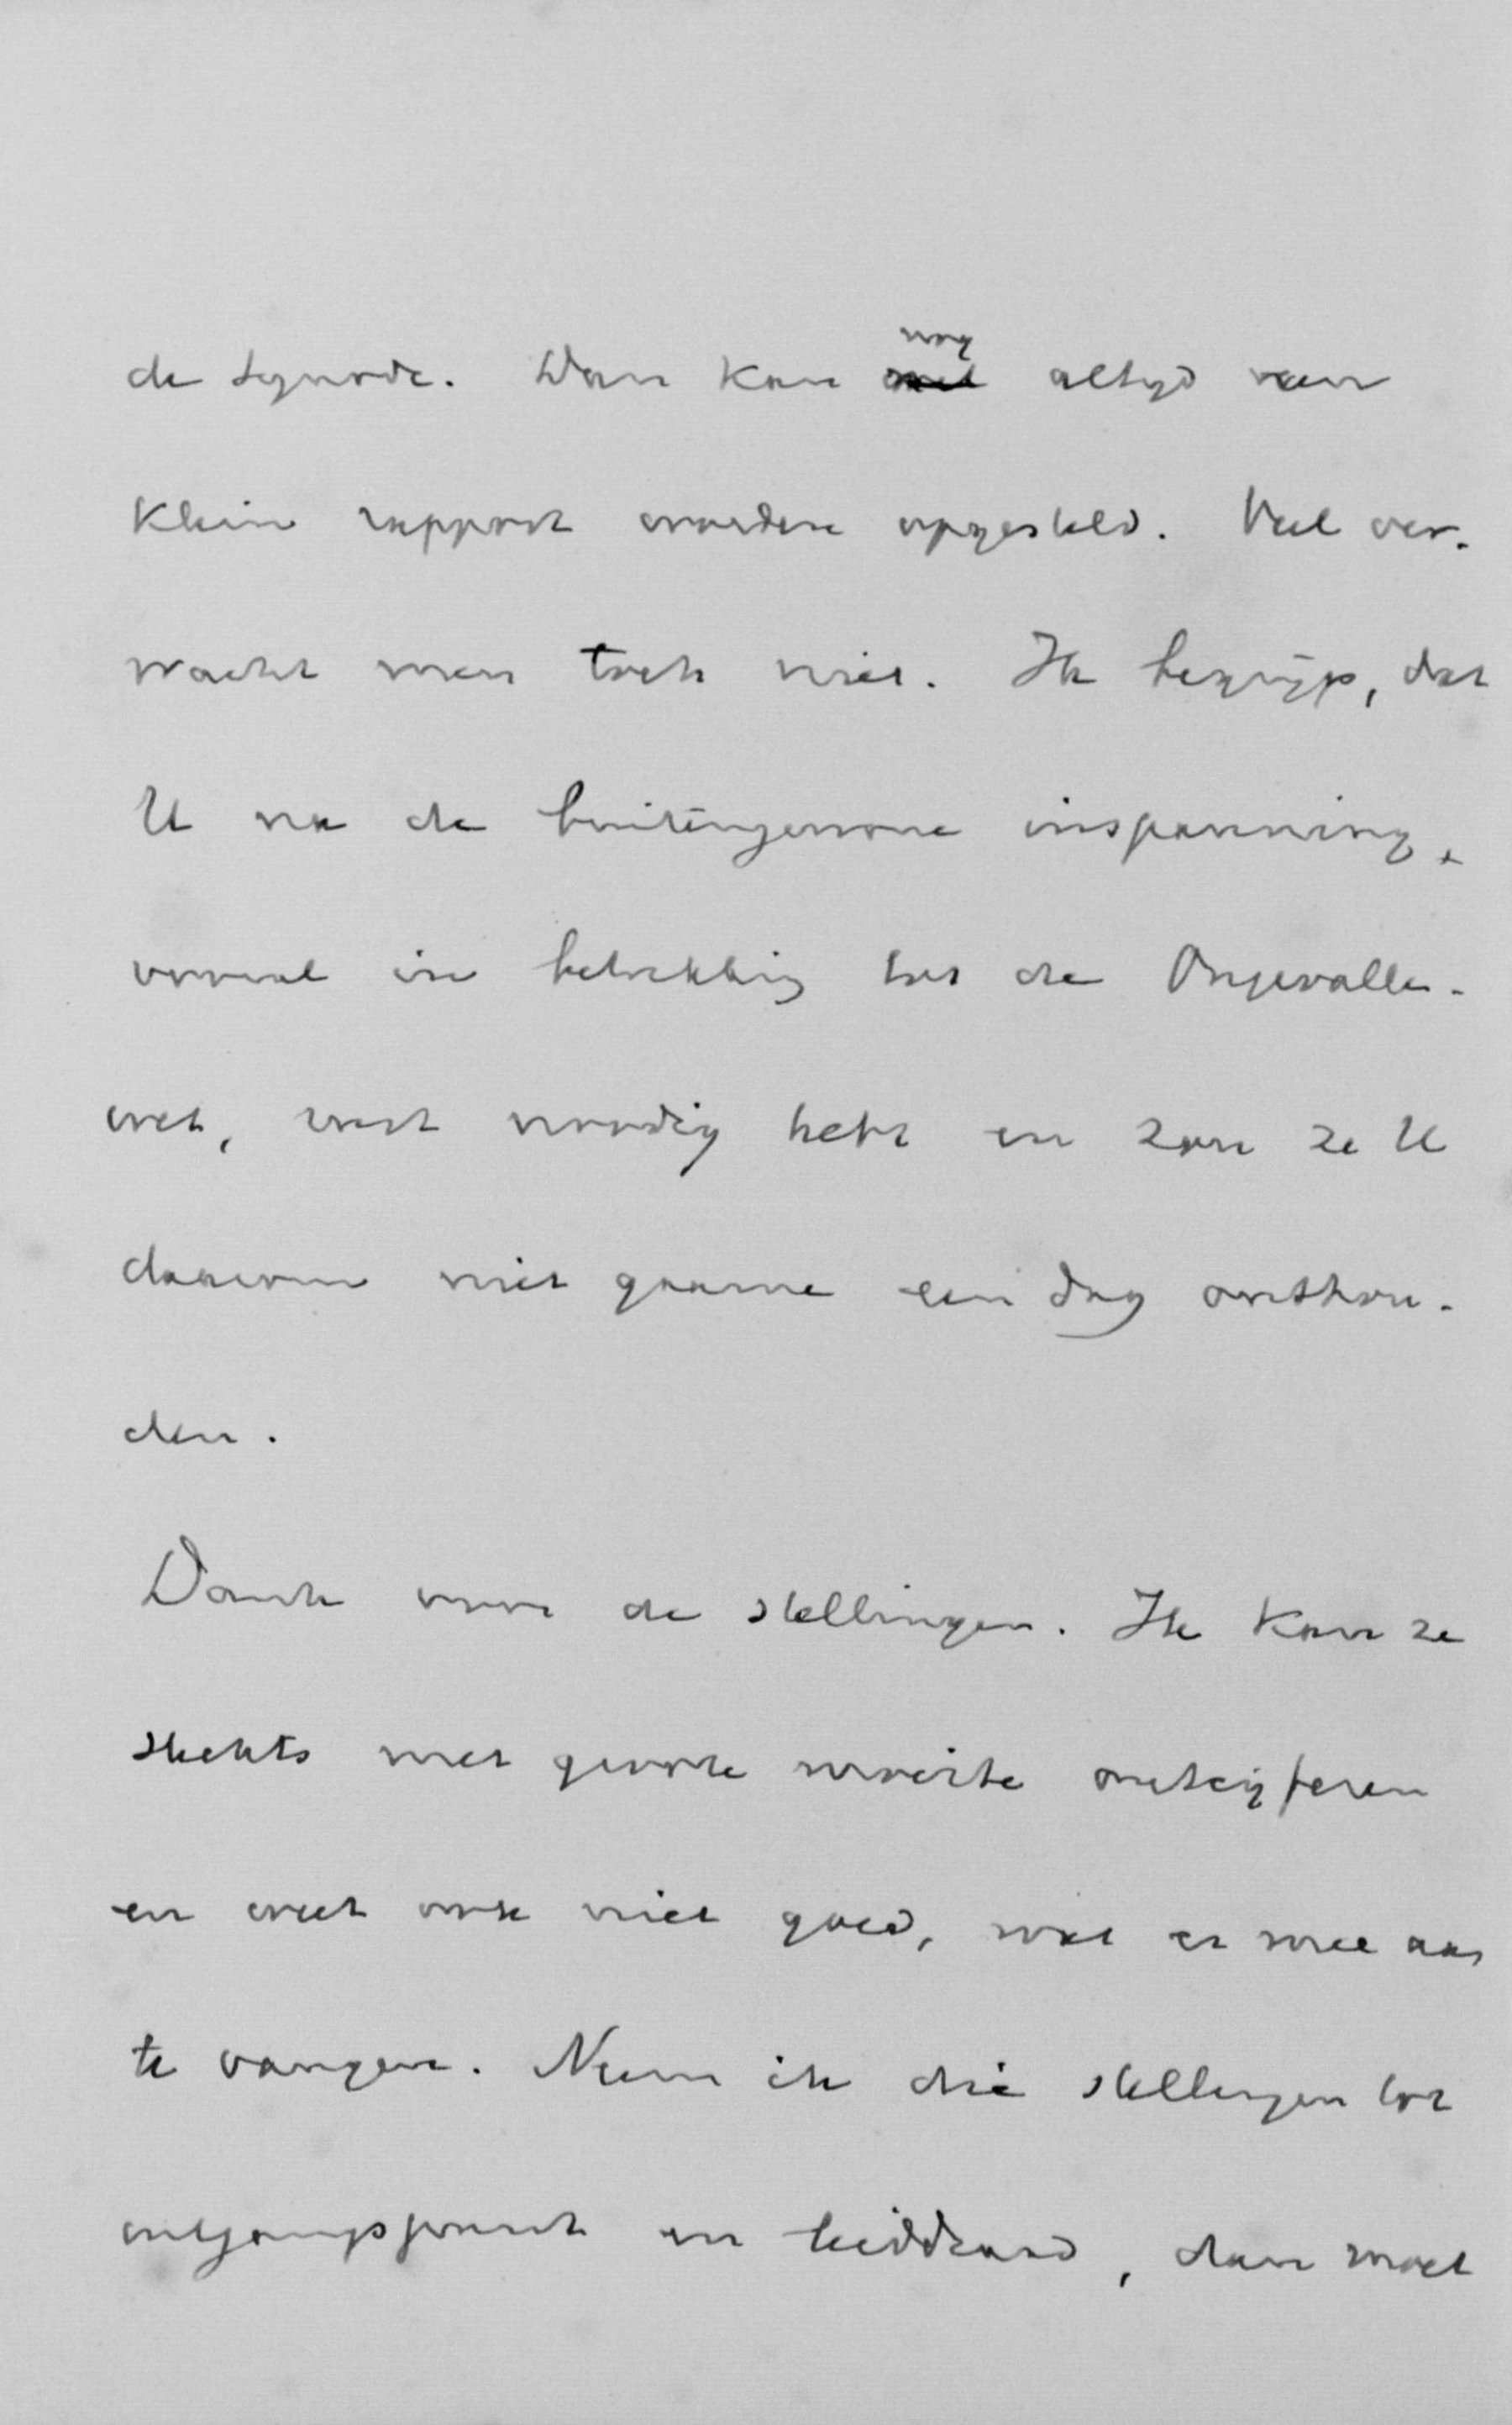 de Synode. Dan kan nog altijd een
klein rapport worden opgesteld. Veel ver-
wacht men toch niet. Ik begrijp, dat
U na de buitengewone inspanning,
vooral in betrekking tot de Ongevallen-
wet, rust noodig hebt en zou ze U
daarom niet gaarne een dag onthou-
den.
Dank voor de stellingen. Ik kan ze
slechts met groote moeite ontcijferen
en weet ook niet goed, wat er mee aan
te vangen. Neem ik die stellingen tot
uitgangspunt en leiddraad, dan moet